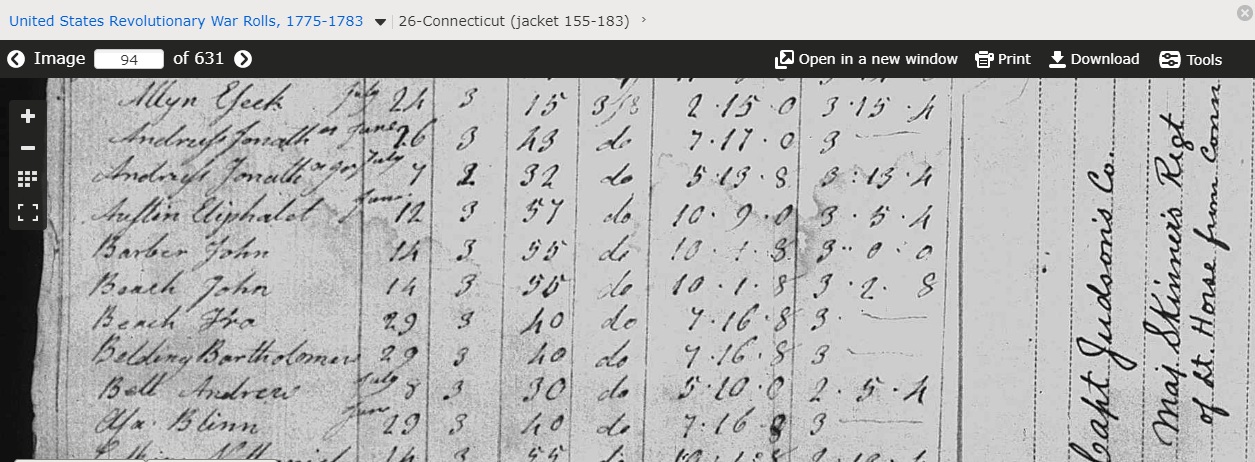 United States Revolutionary War Rolls, 1775-1783 26-Connecticut (jacket 155-183)
Image 94 of 631 Open in a new window Print Download Tools
Allyn July 24 3 15 3/8 2 · 15 · 0 3 · 15 · 4
Jonath June 26 3 43 do 7 · 17 · 0 3
Jonath July 7 2 32 do 5 · 13 · 8 3 · 15 · 4
Austin Eliphalet June 12 3 57 do 10 · 9 · 0 3 · 5 · 4
Barber John 14 3 55 do 10 · 1 · 8 3 · 0 · 0
Beach John 14 3 55 do 10 · 1 · 8 3 · 2 · 8
Beach Fra 29 3 40 do 7 · 16 · 8 3
Belding Bartholomew 29 3 40 do 7 · 16 · 8 3
Bell Andrew July 8 3 30 do 5 · 10 · 0 2 · 5 · 4
Blinn Jun 29 3 40 do 7 · 16 · 8 3
Capt. Judson's Co.
Maj. Skinner's Regt
of Lt. Horse from Conn